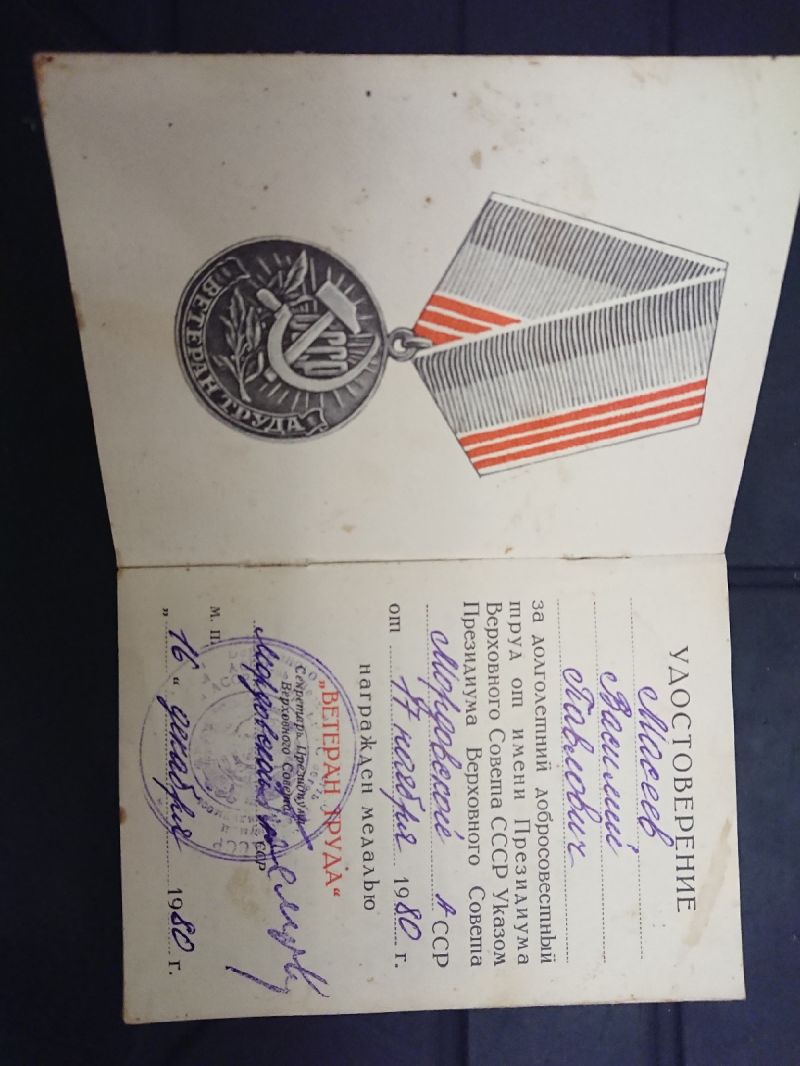 СССР
ВЕТЕРАН ТРУДА
УДОСТОВЕРЕНИЕ
Масеев
Василий
Павлович
за долголетний добросовестный
труд от имени Президиума
Верховного Совета СССР Указом
Президиума Верховного Совета
Мордовской АССР
от 17 ноября 1980 г.
награжден медалью
„ВЕТЕРАН ТРУДА“
Секретарь Президиума
Верховного Совета
Мордовской АССР
м. п.
„16“ декабря 1980 г.